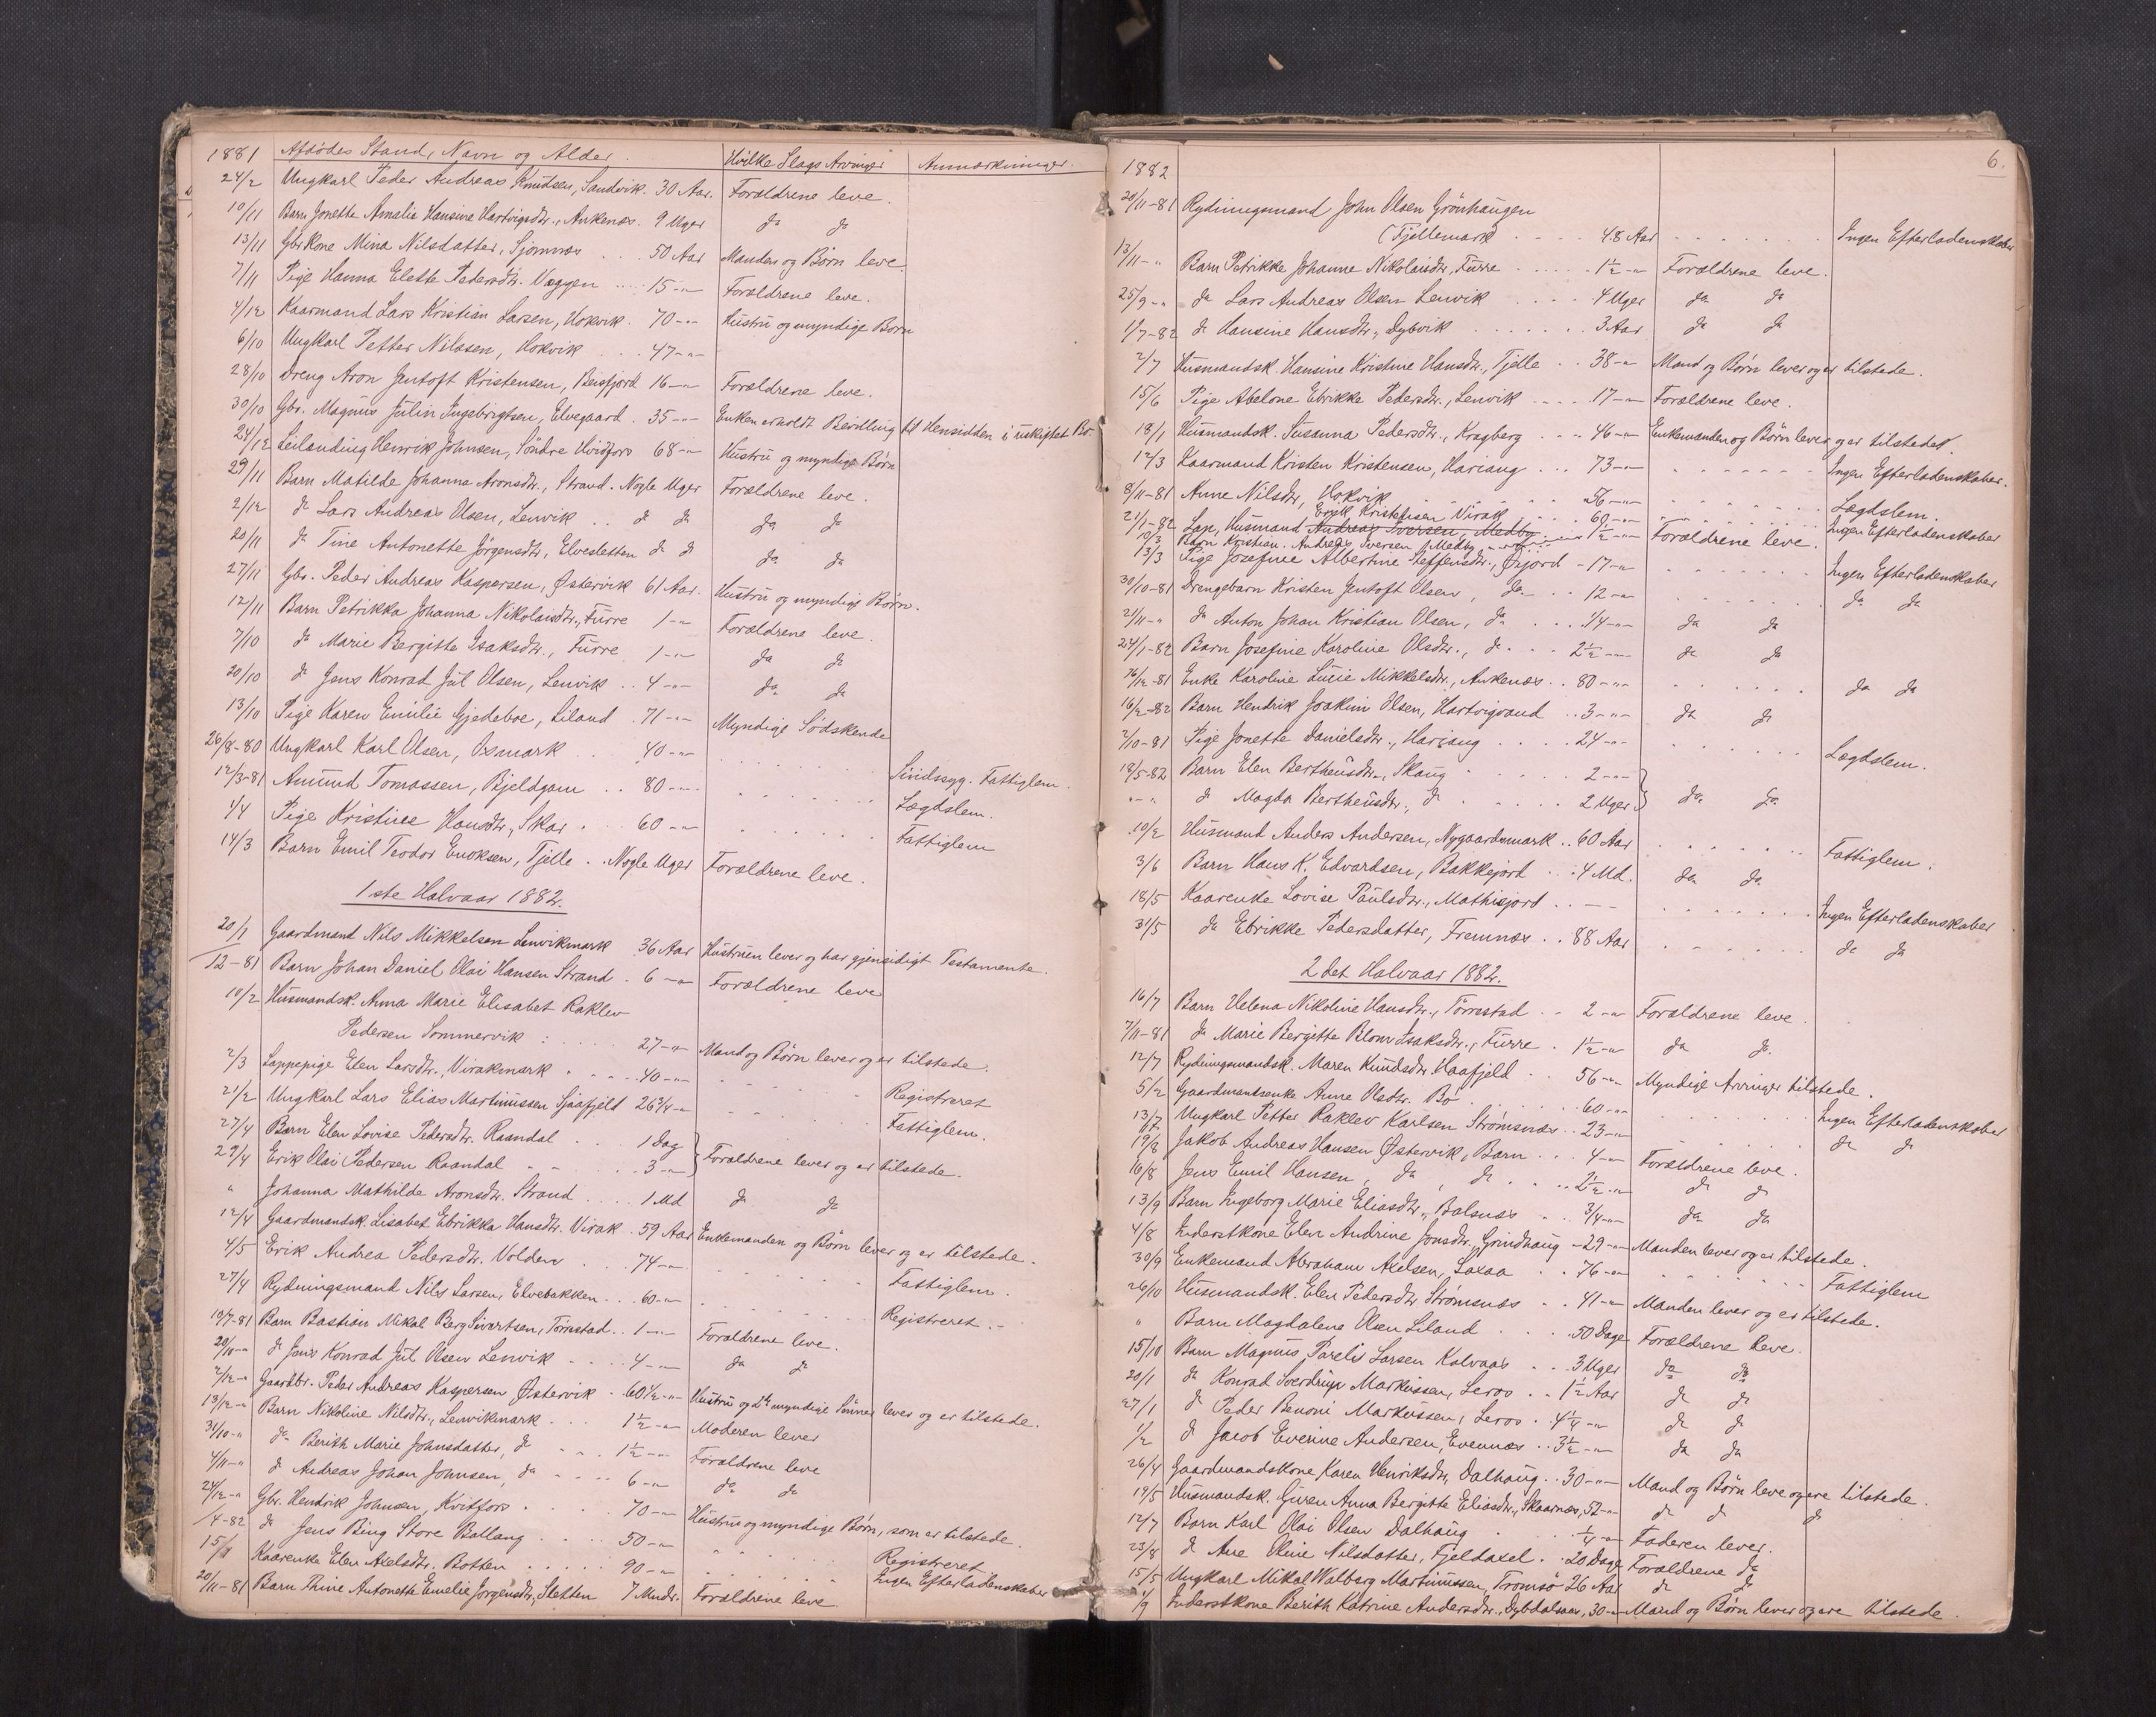 1881 Afdødes Stand, Navn og Alder. Hvilke Slags Arvinger Anmærkninger.
24/2 Ungkarl Peder Andreas Knudsen, Sandvik. 30 Aar. Forældrene leve.
10/11 Barn Jonette Amalia Hansine Hartvigsdtr., Ankenæs. 9 Uger do do
13/11 Gbr.kone Mina Nilsdatter, Sjomnæs . . . 50 Aar Manden og Børn leve.
7/11 Pige Hanna Elette Pedersdtr. Væggen . . . . 15 -"- Forældrene leve.
4/12 Kaarmand Lars Kristian Larsen, Hokvik. 70 -"- Hustru og myndige Børn
6/10 Ungkarl Petter Nilssen, Hokvik . . . 47 -"-
28/10 Dreng Aron Jentoft Kristensen, Beisfjord 16 -"- Forældrene leve.
30/10 Gbr. Magnus Julin Ingebrigtsen, Elvegaard. 35 -"- Enken erholdt Bevilling til Hensidden i uskiftet Bo.
24/12 Leilending Henrik Johnsen, Söndre Hvidfors 68 -"- Hustru og myndige Børn
29/11 Barn Matilde Johanna Aronsdtr., Strand. Nogle Uger Forældrene leve.
2/12 do Lars Andreas Olsen, Lenvik . . do do do do
20/11 do Tine Antonette Jörgensdtr., Elvesletten do do do do
27/11 Gbr. Peder Andreas Kaspersen, Østervik 61 Aar. Hustru og myndige Børn.
12/11 Barn Petrikka Johanna Nikolaisdtr., Furre 1 -"- Forældrene leve.
7/10 do Marie Bergitte Isaksdtr., Furre 1 -"- do do
20/10 do Jens Konrad Jul Olsen, Lenvik . . 4 -"- do do
13/10 Pige Karen Emilie Gjedeboe, Liland . 71 -"- Myndige Södskende
26/8-80 Ungkarl Karl Olsen, Osmark . . 40 -"- . . . . . . Sindssyg. Fattiglem.
12/3-81 Amund Tomassen, Bjeldgam . . 80 -"- . . . . . . Lægdslem.
1/4 Pige Kristine Hansdtr., Skar . . 60 -"- . . . . . . Fattiglem
14/3 Barn Emil Teodor Enoksen, Tjelle . . Nogle Uger Forældrene leve.
1ste Halvaar 1882.
20/1 Gaardmand Nils Mikkelsen Lenvikmark 36 Aar Hustruen lever og har gjensidigt Testamente.
/12-81 Barn Johan Daniel Olai Hansen Strand . 6 -"- Forældrene leve
10/2 Husmandsk. Anna Marie Elisabet Raklev
Pedersen Sommervik : . . . . 27 -"- Mand og Børn lever og er tilstede.
2/3 Lappepige Elen Larsdtr., Virakmark . . . . 40 -"- . . . . Registreret
21/2 Ungkarl Lars Elias Martinussen Sjaafjeld 26 3/4 -"- . . . . Fattiglem.
27/4 Barn Elen Lovise Pedersdtr. Raandal . . . 1 Dag } Forældrene lever og er tilstede.
29/4 Erik Olai Pedersen Raandal . . . . 3 -"-
" Johanna Mathilde Aronsdtr. Strand . . . . 1 Md do do
12/4 Gaardmandsk. Lisabet Ebrikka Hansdtr. Virak . 59 Aar Enkemanden og Børn lever og er tilstede.
4/5 Erik Andrea Pedersdtr. Volden . . . 74 -"- . . . . . . Fattiglem.
27/4 Rydningsmand Nils Larsen, Elvebakken . . . 60 -"- . . . . . . Registreret.
19/7-81 Barn Bastian Mikal Berg Sivertsen, Tørrestad . . 1 -"- Forældrene leve.
20/10-" do Jens Konrad Jul Olsen Lenvik . . . . 4 -"- do do
2/12-" Gaardbr. Peder Andreas Kaspersen Østervik . 60 1/2 -"- Hustru og 2de myndige Sönner lever og er tilstede.
13/12-" Barn Nikoline Nilsdtr., Lenvikmark . . . 1 1/2 -"- Moderen lever
31/10-" do Berith Marie Johnsdatter, do . . . 1 1/2 -"- Forældrene leve
4/11-" do Andreas Johan Johnsen, do . . . . 6 -"- do do
24/12-" Gbr. Hendrik Johnsen, Kvitfors . . . . 70 -"- Hustru og myndige Børn, som er tilstede.
/4-82 do Jens Bing Store Ballang . . . . 50 -"- . . . . Registreret
15/ Kaarenke Elen Axelsdtr. Botten . . . . . 90 -"- . . . . Ingen Efterladenskaber
20/11-81 Barn Thine Antonette Emelie Jörgensdtr., Sletten 7 Mndr. Forældrene leve
1882 6.
20/11-81 Rydningsmand John Olsen Grönhaugen
(Fjellemark) . . . . 48 Aar . . . . . . Ingen Efterladenskaber
13/11-" Barn Petrikke Johanne Nikolaisdtr., Furre . . . . . 1 1/2 -"- Forældrene leve.
25/9-" do Lars Andreas Olsen Lenvik . . . . 4 Uger do do
1/7-82 do Hansine Hansdtr., Dybvik . . . . . . 3 Aar do do
2/7 Husmandsk. Hansine Kristine Hansdtr., Tjelle . . 38 -"- Mand og Børn lever og er tilstede.
15/6 Pige Abelone Ebrikke Pedersdtr., Lenvik . . . . 17 -"- Forældrene leve.
18/1 Husmandsk. Susanna Pedersdtr., Kragberg . . . 46 -"- Enkemanden og Børn lever og er tilstedet.
12/3 Kaarmand Kristen Kristensen, Hariang . . . 73 -"- . . . . . . Ingen Efterladenskaber.
8/11-81 Anne Nilsdtr, Hokvik . . . . . . 56 -"- . . . . . . Lægdslem.
21/1-82 Lap, Husmand Erik Kristensen Virak . . . . 60 -"- . . . . Ingen Efterladenskaber
Andreas Iversen, Medby
10/3 Barn Kristian Andreas Iversen, Medby 1 1/2 -"- Forældrene leve.
13/3 Pige Josefine Albertine Steffensdtr., Øijord - 17 -"- . . . . . . Ingen Efterladenskaber
30/10-81 Drengebarn Kristen Jentoft Olsen, do . . . 12 -"- . . . . . . do do
21/11-" do Anton Johan Kristian Olsen, do . . . 14 -"- do do
24/1-82 Barn Josefine Karoline Olsdtr., do . . . 2 1/2 -"- do do
/12-81 Enke Karoline Lucie Mikkelsdtr., Ankenæs . . 80 -"- . . . . . . do do
16/2-82 Barn Hendrik Joakim Olsen, Hartvigvand . . 3 -"- do do
2/10-81 Pige Jonette Danielsdtr., Hariang . . . . 24 -"- . . . . . . Lægdslem.
18/5-82 Barn Elen Bertheusdtr., Skaug . . . . . 2 -"- }
" - " do Magda Bertheusdtr., do . . . . . 2 Uger do do
10/2 Husmand Anders Andersen, Nygaardsmark . . 60 Aar . . . . . . Fattiglem.
3/6 Barn Hans K. Edvardsen, Bakkejord . . . 4 Md. do do
18/5 Kaarenke Lovise Paulsdtr., Mathisjord . . - - . . . . . . Ingen Efterladenskaber
31/5 do Ebrikke Pedersdatter, Fremnæs . . 88 Aar . . . . . . do do
2det Halvaar 1882.
16/7 Barn Helena Nikoline Hansdtr., Tørrestad . . 2 -"- Forældrene leve.
7/11-81 do Marie Bergitte Blom Isaksdtr., Furre . 1 1/2 -"- do do
12/7 Rydningsmandsk. Maren Knudsdtr. Haafjeld . . 56 -"- Myndige Arvinger tilstede.
5/2 Gaardmandsenke Anne Olsdtr. Bø . . . . . . 60 -"- . . . . . . Ingen Efterladenskaber
13/7 Ungkarl Petter Raklev Karlsen Strømsnæs . . 23 -"- . . . . . . do do
19/8 Jakob Andreas Hansen Østervik, Barn . . . 4 -"- Forældrene leve.
16/8 Jens Emil Hansen, do, do . . . . 2 1/2 -"- do do
13/9 Barn Ingeborg Marie Eliasdtr., Balsnæs . . 3/4 -"- do do
4/8 Inderstkone Elen Andrine Jonsdtr., Grindhaug - 29 -"- Manden lever og er tilstede.
30/9 Enkemand Abraham Axelsen, Laxaa . . 76 -"- . . . . . . Fattiglem
26/10 Husmandsk. Elen Pedersdtr. Strømsnæs . . 41 -"- Manden lever og er tilstede.
" Barn Magdalene Olsen Liland . . . . 50 Dage Forældrene leve.
15/10 Barn Magnus Parelis Larsen Kalvaas . . . 3 Uger do do
20/1 do Konrad Soerdrup Markussen, Leros . . 1 1/2 Aar do do
27/1 do Peder Benoni Markussen, Leros . . 4 1/4 -"- do do
1/2 do Jacob Everine Andersen, Evennæs . . 3 1/2 -"- do do
26/4 Gaardmandskone Karen Henriksdtr, Dalhaug . . 30 -"- Mand og Børn leve og ere tilstede.
19/5 Husmandsk. Guren Anna Bergitte Eliasdtr., Skaarnæs, 52 -"- do do do
12/7 Barn Karl Olai Olsen Dalhaug . . . . 1/4 -"- Faderen lever.
23/8 do Ane Oline Nilsdatter, Fjeldaxel . . 20 Dage Forældrene do
15/5 Ungkarl Mikal Walberg Martinussen, Tromsø 26 Aar do do
1/9 Inderstkone Berith Katrine Andersdtr., Dybdalsaas, 30 -"- Mand og Børn lever og ere tilstede.